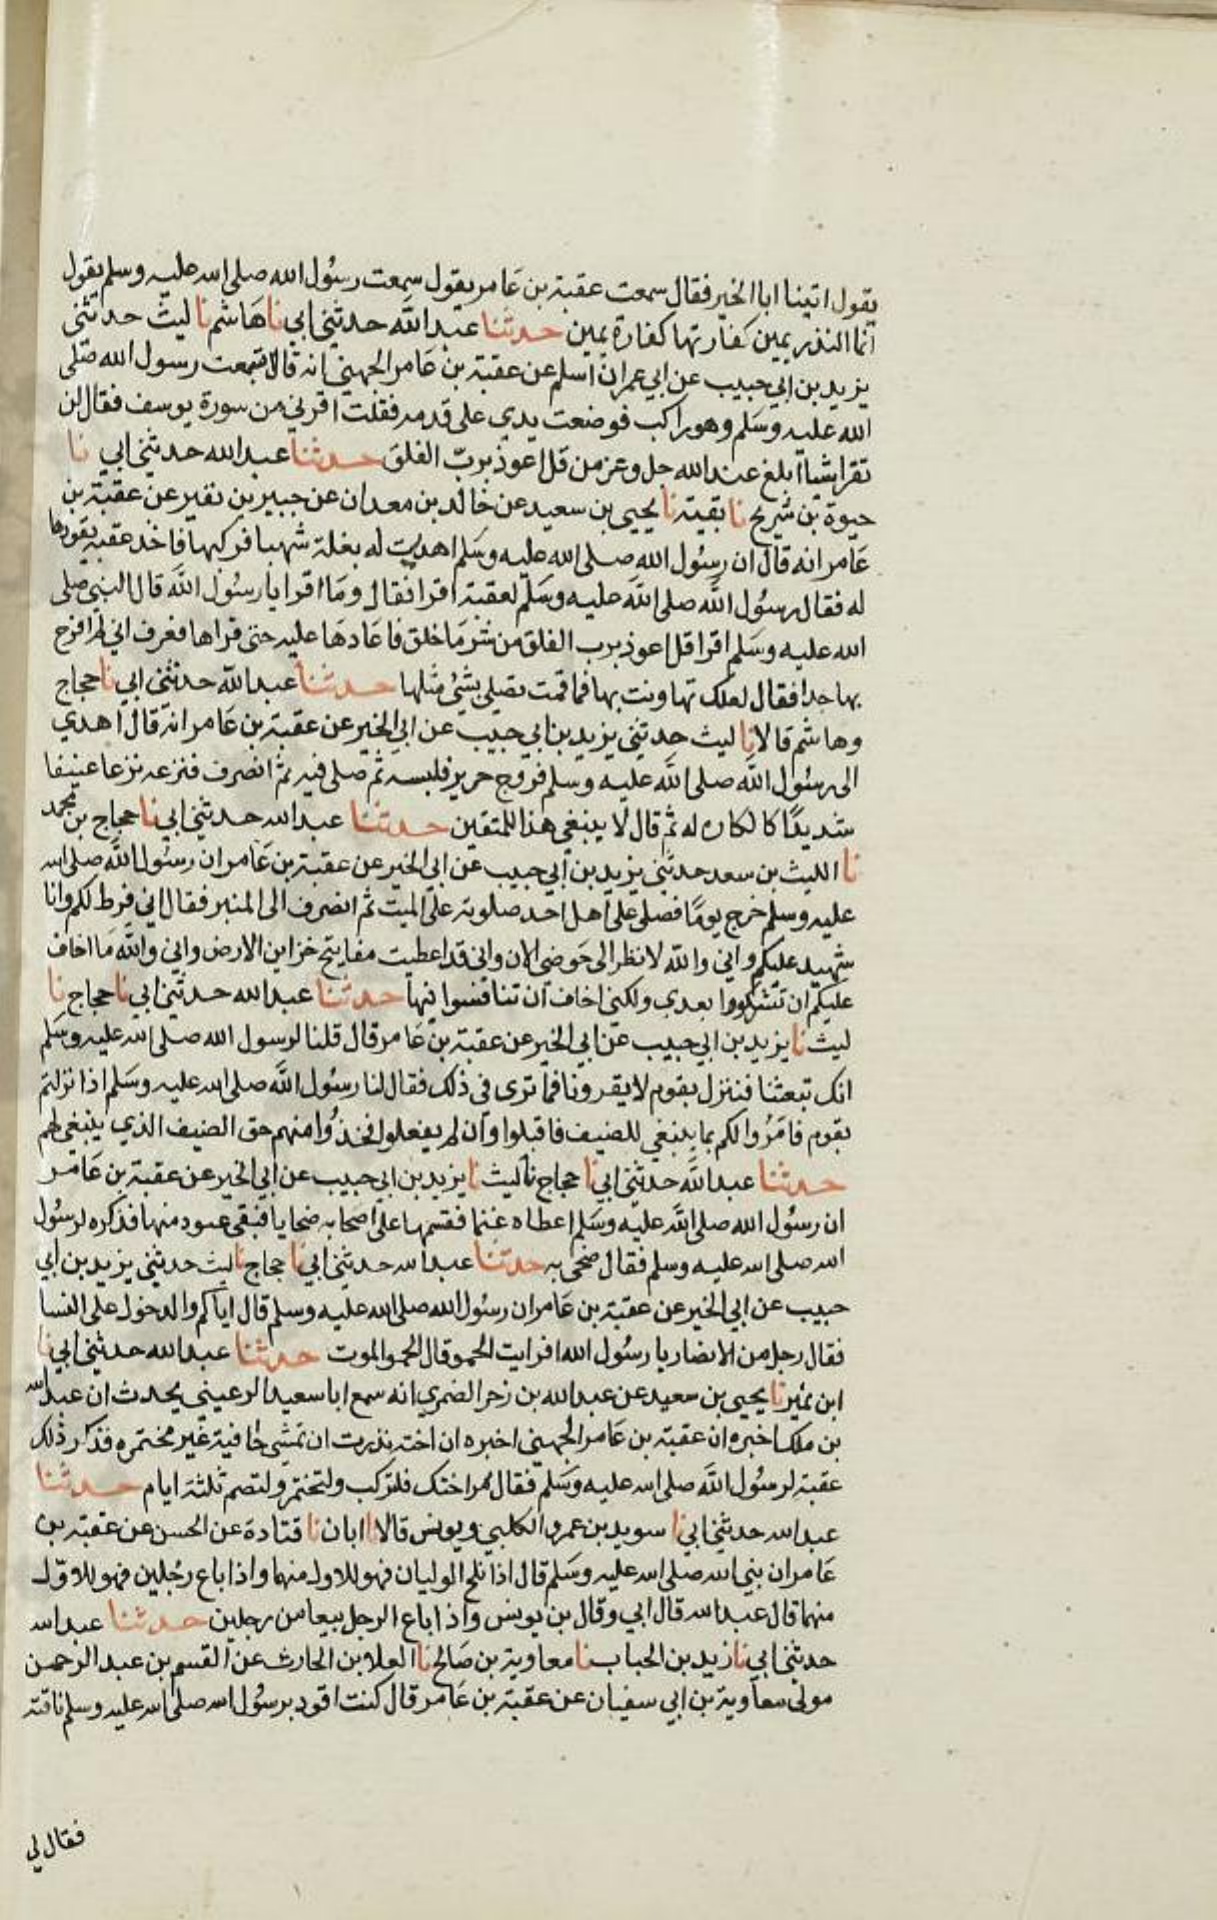 يقول اتينا ابا الخير فقال سمعت عقبة بن عامر يقول سمعت رسول الله صلى الله عليه وسلم يقول
انما النذر يمين كفارتها كفارة يمين حدثنا عبد الله حدثني ابي نا هاشم نا ليث حدثني
يزيد بن ابي حبيب عن ابي عمران اسلم عن عقبة بن عامر الجهني انه قال اتبعت رسول الله صلى
الله عليه وسلم وهو راكب فوضعت يدي على قدمه فقلت اقرني من سورة يوسف فقال لن
تقرا شيا ابلغ عند الله جل وعز من قل اعوذ برب الفلق حدثنا عبد الله حدثني ابي نا
حيوة بن شريح نا بقية نا يحيى بن سعيد عن خالد بن معدان عن جبير بن نفير عن عقبة بن
عامر انه قال ان رسول الله صلى الله عليه وسلم اهديت له بغلة شهبا فركبها فاخذ عقبة يقودها
له فقال رسول الله صلى الله عليه وسلم لعقبة اقرا فقال وما اقرا يا رسول الله قال النبي صلى
الله عليه وسلم اقرا قل اعوذ برب الفلق من شر ما خلق فاعادها عليه حتى قراها فعرف اني لم افرح
بها جدا فقال لعلك تهاونت بها فما قمت تصلي بشئ مثلها حدثنا عبد الله حدثني ابي نا حجاج
وهاشم قالا نا ليث حدثني يزيد بن ابي حبيب عن ابي الخير عن عقبة بن عامر انه قال اهدي
الى رسول الله صلى الله عليه وسلم فروج حرير فلبسه ثم صلى فيه ثم انصرف فنزعه نزعا عنيفا
شديدا كالكاره له ثم قال لا ينبغي هذا للمتقين حدثنا عبد الله حدثني ابي نا حجاج بن محمد
نا الليث بن سعد حدثني يزيد بن ابي حبيب عن ابي الخير عن عقبة بن عامر ان رسول الله صلى الله
عليه وسلم خرج يوما فصلى على اهل احد صلوته على الميت ثم انصرف الى المنبر فقال اني فرط لكم وانا
شهيد عليكم واني والله لانظر الى حوضي الان واني قد اعطيت مفاتيح خزاين الارض واني والله ما اخاف
عليكم ان تشركوا بعدي ولكني اخاف ان تنافسوا فيها حدثنا عبد الله حدثني ابي نا حجاج نا
ليث نا يزيد بن ابي حبيب عن ابي الخير عن عقبة بن عامر قال قلنا لرسول الله صلى الله عليه وسلم
انك تبعثنا فننزل بقوم لا يقروننا فما ترى في ذلك فقال لنا رسول الله صلى الله عليه وسلم اذا نزلتم
بقوم فامروا لكم بما ينبغي للضيف فاقبلوا وان لم يفعلوا فخذوا منهم حق الضيف الذي ينبغي لهم
حدثنا عبد الله حدثني ابي نا حجاج نا ليث نا يزيد بن ابي حبيب عن ابي الخير عن عقبة بن عامر
ان رسول الله صلى الله عليه وسلم اعطاه غنما فقسمها على اصحابه ضحايا فبقي عتود منها فذكره لرسول
الله صلى الله عليه وسلم فقال ضحي به حدثنا عبد الله حدثني ابي نا حجاج نا ليث حدثني يزيد بن ابي
حبيب عن ابي الخير عن عقبة بن عامر ان رسول الله صلى الله عليه وسلم قال اياكم والدخول على النسا
فقال رجل من الانصار يا رسول الله افرايت الحمو قال الحمو الموت حدثنا عبد الله حدثني ابي نا
ابن نمير نا يحيى بن سعيد عن عبد الله بن زحر الضمري انه سمع ابا سعيد الرعيني يحدث ان عبد الله
بن ملك اخبره ان عقبة بن عامر الجهني اخبره ان اخته نذرت ان تمشي حافية غير مختمرة فذكر ذلك
عقبة لرسول الله صلى الله عليه وسلم فقال مر اختك فلتركب ولتختمر ولتصم ثلثة ايام حدثنا
عبد الله حدثني ابي نا سويد بن عمرو الكلبي ويونس قالا نا ابان نا قتادة عن الحسن عن عقبة بن
عامر ان نبي الله صلى الله عليه وسلم قال اذا نكح الوليان فهو للاول منهما واذا باع رجلين فهو للاول
منهما قال عبد الله قال ابي وقال بن يونس واذا باع الرجل بيعا من رجلين حدثنا عبد الله
حدثني ابي نا زيد بن الحباب نا معاوية بن صالح نا العلا بن الحارث عن القسم بن عبد الرحمن
مولى معاوية بن ابي سفيان عن عقبة بن عامر قال كنت اقود برسول الله صلى الله عليه وسلم ناقته
فقال لي